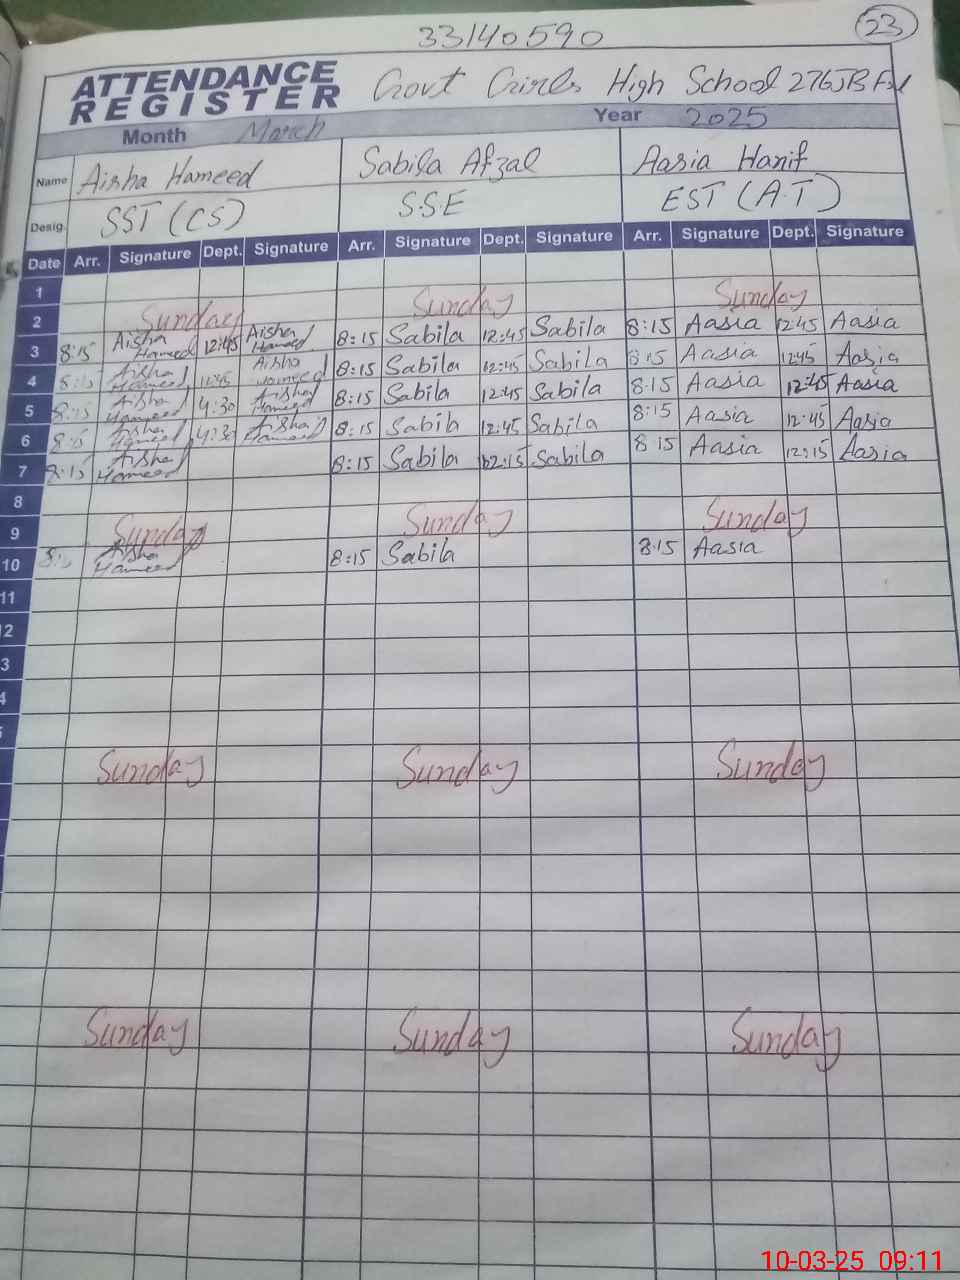 33140590 23
ATTENDANCE REGISTER Govt Girls High School 276JB Fsd
Month March Year 2025
Name Aisha Hameed Sabila Afzal Aasia Hanif
Desig. SST (CS) S.S.E EST (A.T)
Date Arr. Signature Dept. Signature Arr. Signature Dept. Signature Arr. Signature Dept. Signature
1
2 Sunday Sunday Sunday
3 8:15 Aisha Hameed 12:45 Aisha Hameed 8:15 Sabila 12:45 Sabila 8:15 Aasia 12:45 Aasia
4 8:15 Aisha Hameed 12:45 Aisha Hameed 8:15 Sabila 12:45 Sabila 8:15 Aasia 12:45 Aasia
5 8:15 Aisha Hameed 4:30 Aisha Hameed 8:15 Sabila 12:45 Sabila 8:15 Aasia 12:45 Aasia
6 8:15 Aisha Hameed 4:30 Aisha Hameed 8:15 Sabila 12:45 Sabila 8:15 Aasia 12:45 Aasia
7 8:15 Aisha Hameed 8:15 Sabila 12:15 Sabila 8:15 Aasia 12:15 Aasia
8
9 Sunday Sunday Sunday
10 Aisha Hameed 8:15 Sabila 8:15 Aasia
11
2
3
4
Sunday Sunday Sunday
Sunday Sunday Sunday
10-03-25 09:11